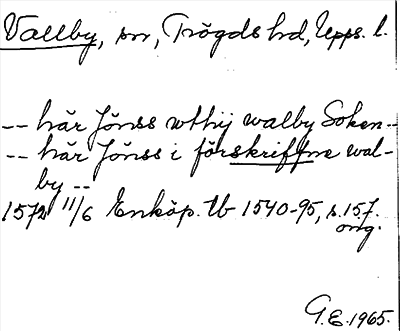 Vallby, sn, Trögds hd, Upps. l.
-- här Jönss wthij walby Soken --
-- här Jönss i förskriffne wal-
by --
1572 11/6 Enköp. tb 1540-95, s. 157.
orig.
G.E. 1965.